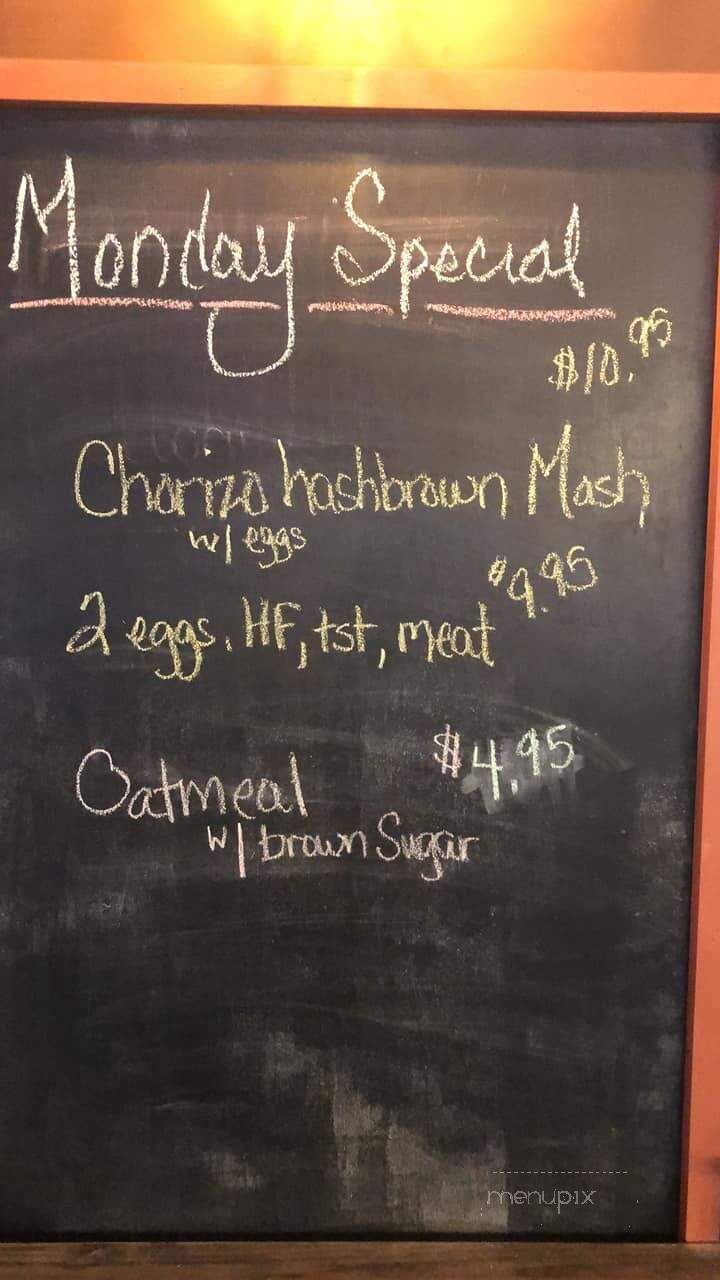 Monday Special
$10.95
Chorizo hashbrown Mash
w/ eggs
$9.95
2 eggs, HF, tst, meat
$4.95
Oatmeal
w/ brown Sugar
menupix